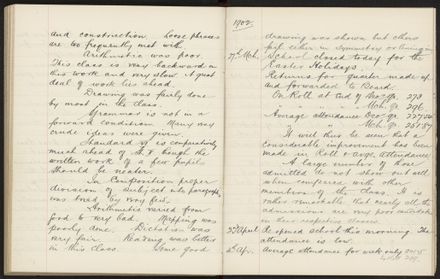 and construction. Loose phrases
are too frequently met with.
Arithmetic was poor.
This class is very backward in
this work and very slow. A great
deal of work lies ahead.
Drawing was fairly done
by most in the class.
Grammar is not in a
forward condition. Many very
crude ideas were given.
Standard VI is comparatively
much ahead of St V though the
written work of a few pupils
should be neater.
In Composition proper
division of subject into paragraphs
was tried by very few.
Arithmetic varied from
good to very bad. Mapping was
poorly done. Dictation was
very fair. Reading was better
in this class. Some good
1902.
drawing was shown but others
fail either in symmetry or lining in
27th Mch. School closed today for the
Easter Holidays.
Returns for quarter made up
and forwarded to Board.
On Roll at end of Dec. qr. 273
" " " " Mch. qr. 296
Average attendance Dec. qr.
" " Mch. qr.
It will thus be seen that a
considerable improvement has been
made in Roll & avge attendance.
A large number of those
admitted do not show out well
when compared with other
members of the class. It is
rather remarkable that nearly all the
admissions are very poor
in their respective classes.
3rd April Re opened school this morning. The
attendance is low.
4th Apr. Average attendance for week only